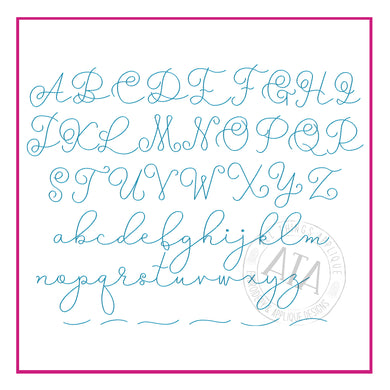 A B C D E F G H I
J K L M N O P Q R
S T U V W X Y Z
abcdefghijklm
nopqrstuvwxyz
ATA
APPLIQUE DESIGNS